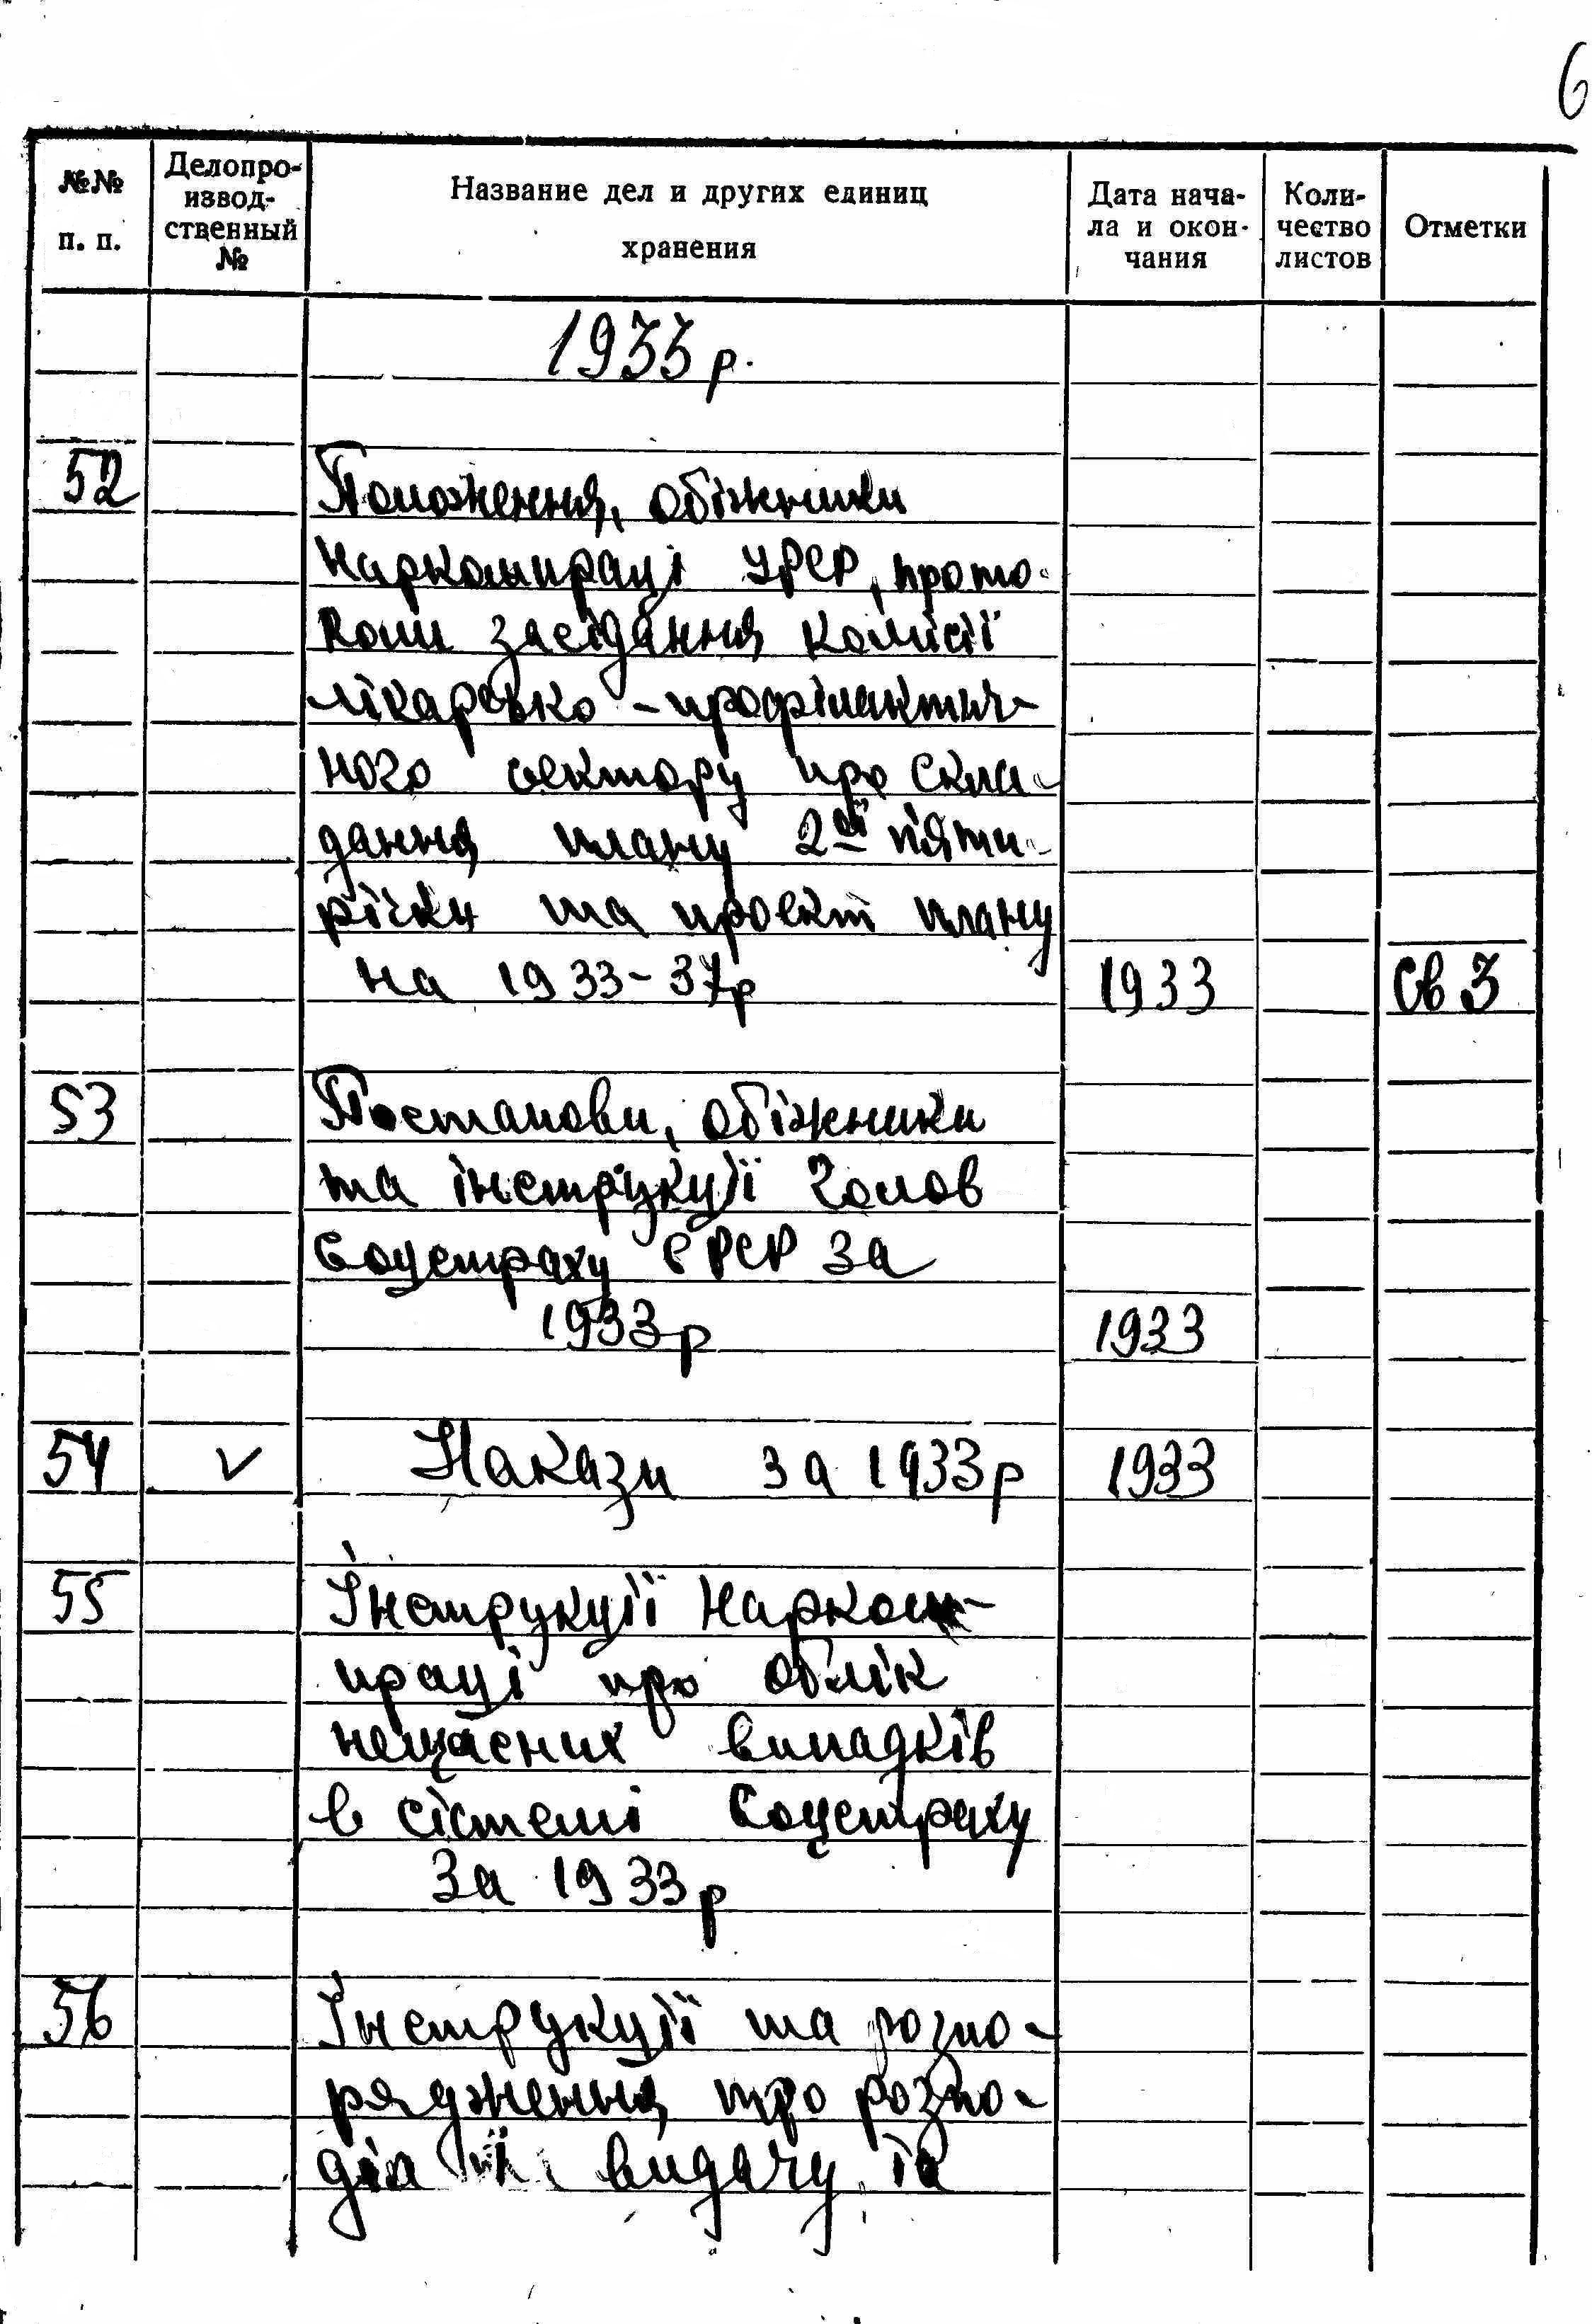 6
№№ п. п.
Делопро-
извод-
ственный
№
Название дел и других единиц
хранения
Дата нача-
ла и окон-
чания
Коли-
чество
листов
Отметки
1933 р.
52 Положення, обіжники
Наркомпраці УРСР, прото-
коли засідання комісії
лікарсько-профілактич-
ного сектору про скла-
дання плану 2ої п'яти-
річки та проект плану
на 1933-37р 1933 Св 3
53 Постанови, обіжники
та інструкції Голов
соцстраху СРСР за
1933р 1933
54 ✓ Накази за 1933р 1933
55 Інструкції Нарком-
праці про облік
нещасних випадків
в сістемі Соцстраху
за 1933р
56 Інструкції та розпо-
рядження про розпо-
діл видачу